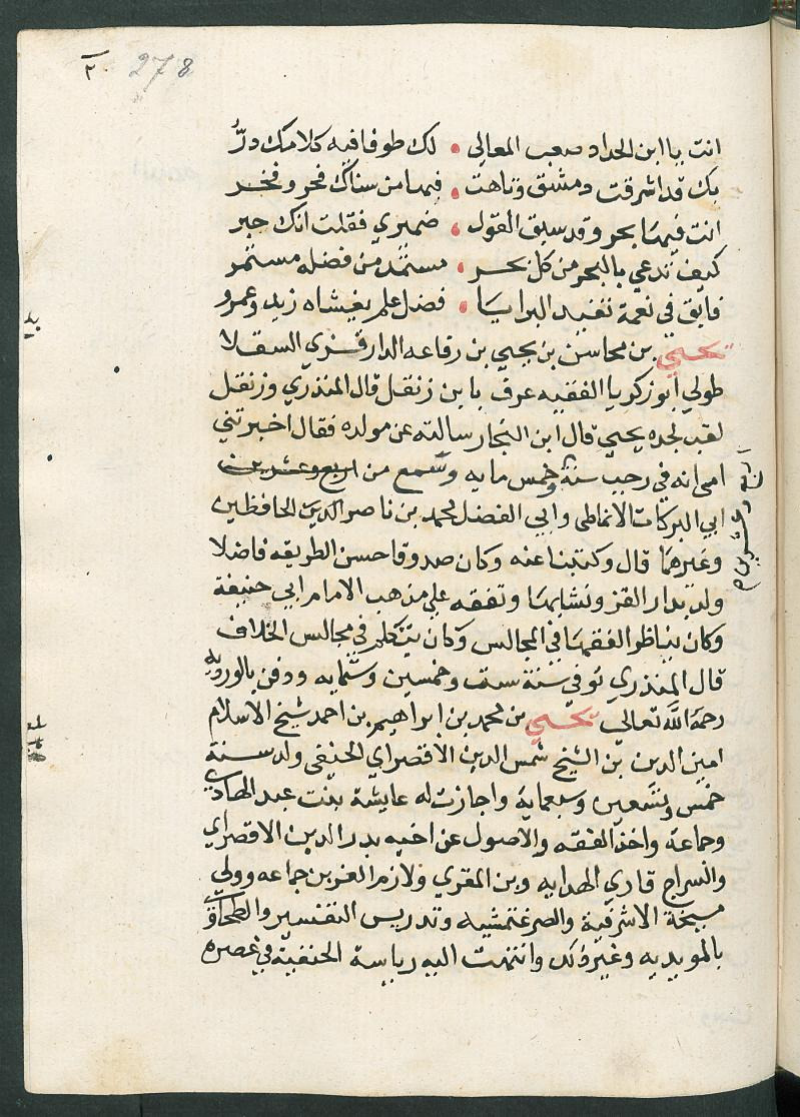 ٢ 278
انت يا ابن الحداد صعب المعالي • لك طوفا فيه كلامك درُّ
بك قد اشرقت دمشق وتاهت • فيها من سناك فحر وفخر
انت فيها بحر وقد سبق القول • ضميري فقلت انك حبر
كيف تدعي بالبحر من كل بحر • مستمد من فضله مستمر
فابق في نعمة تفيد البرايا • فضل علم يغيشاه زيد وعمرو
يحيي بن محاسن بن يحيي بن رفاعه الدار قزي السقلا
طولي ابو زكريا الفقيه عرف بابن زنقل قال المنذري وزنقل
لقب لجده يحيي قال ابن النجار سالته عن مولده فقال اخبرتني
امي انه في رجب سنة وخمس مايه وسمع من اربع وعشرين
اربع وعشرين
ابي البركات الانماطي وابي الفضل محمد بن ناصر الدين الحافظين
وغيرهما قال وكتبنا عنه وكان صدوقا حسن الطريقه فاضلا
ولد بدار القز ونشا بها وتفقه علي مذهب الامام ابي حنيفة
وكان يناظر الفقها في المجالس وكان يتكلم في مجالس الخلاف
قال المنذري توفي سنة ست وخمسين وستمايه ودفن بالورديه
رحمة الله تعالي يحيي بن محمد بن ابراهيم بن احمد شيخ الاسلام
امين الدين بن الشيخ شمس الدين الاقصراي الحنفي ولد سنة
خمس وتسعين وسبعماية واجازت له عايشة بنت عبد الهادي
وجماعة واخذ الفقه والاصول عن اخيه بدر الدين الاقصراي
والسراج قاري الهدايه وبن المقري ولازم العز بن جماعه وولي
مسيخة الاشرفية والصرغتمشيه وتدريس التفسير والطحاوي
بالمويديه وغير ذلك وانتهت اليه رياسة الحنفية في عصره